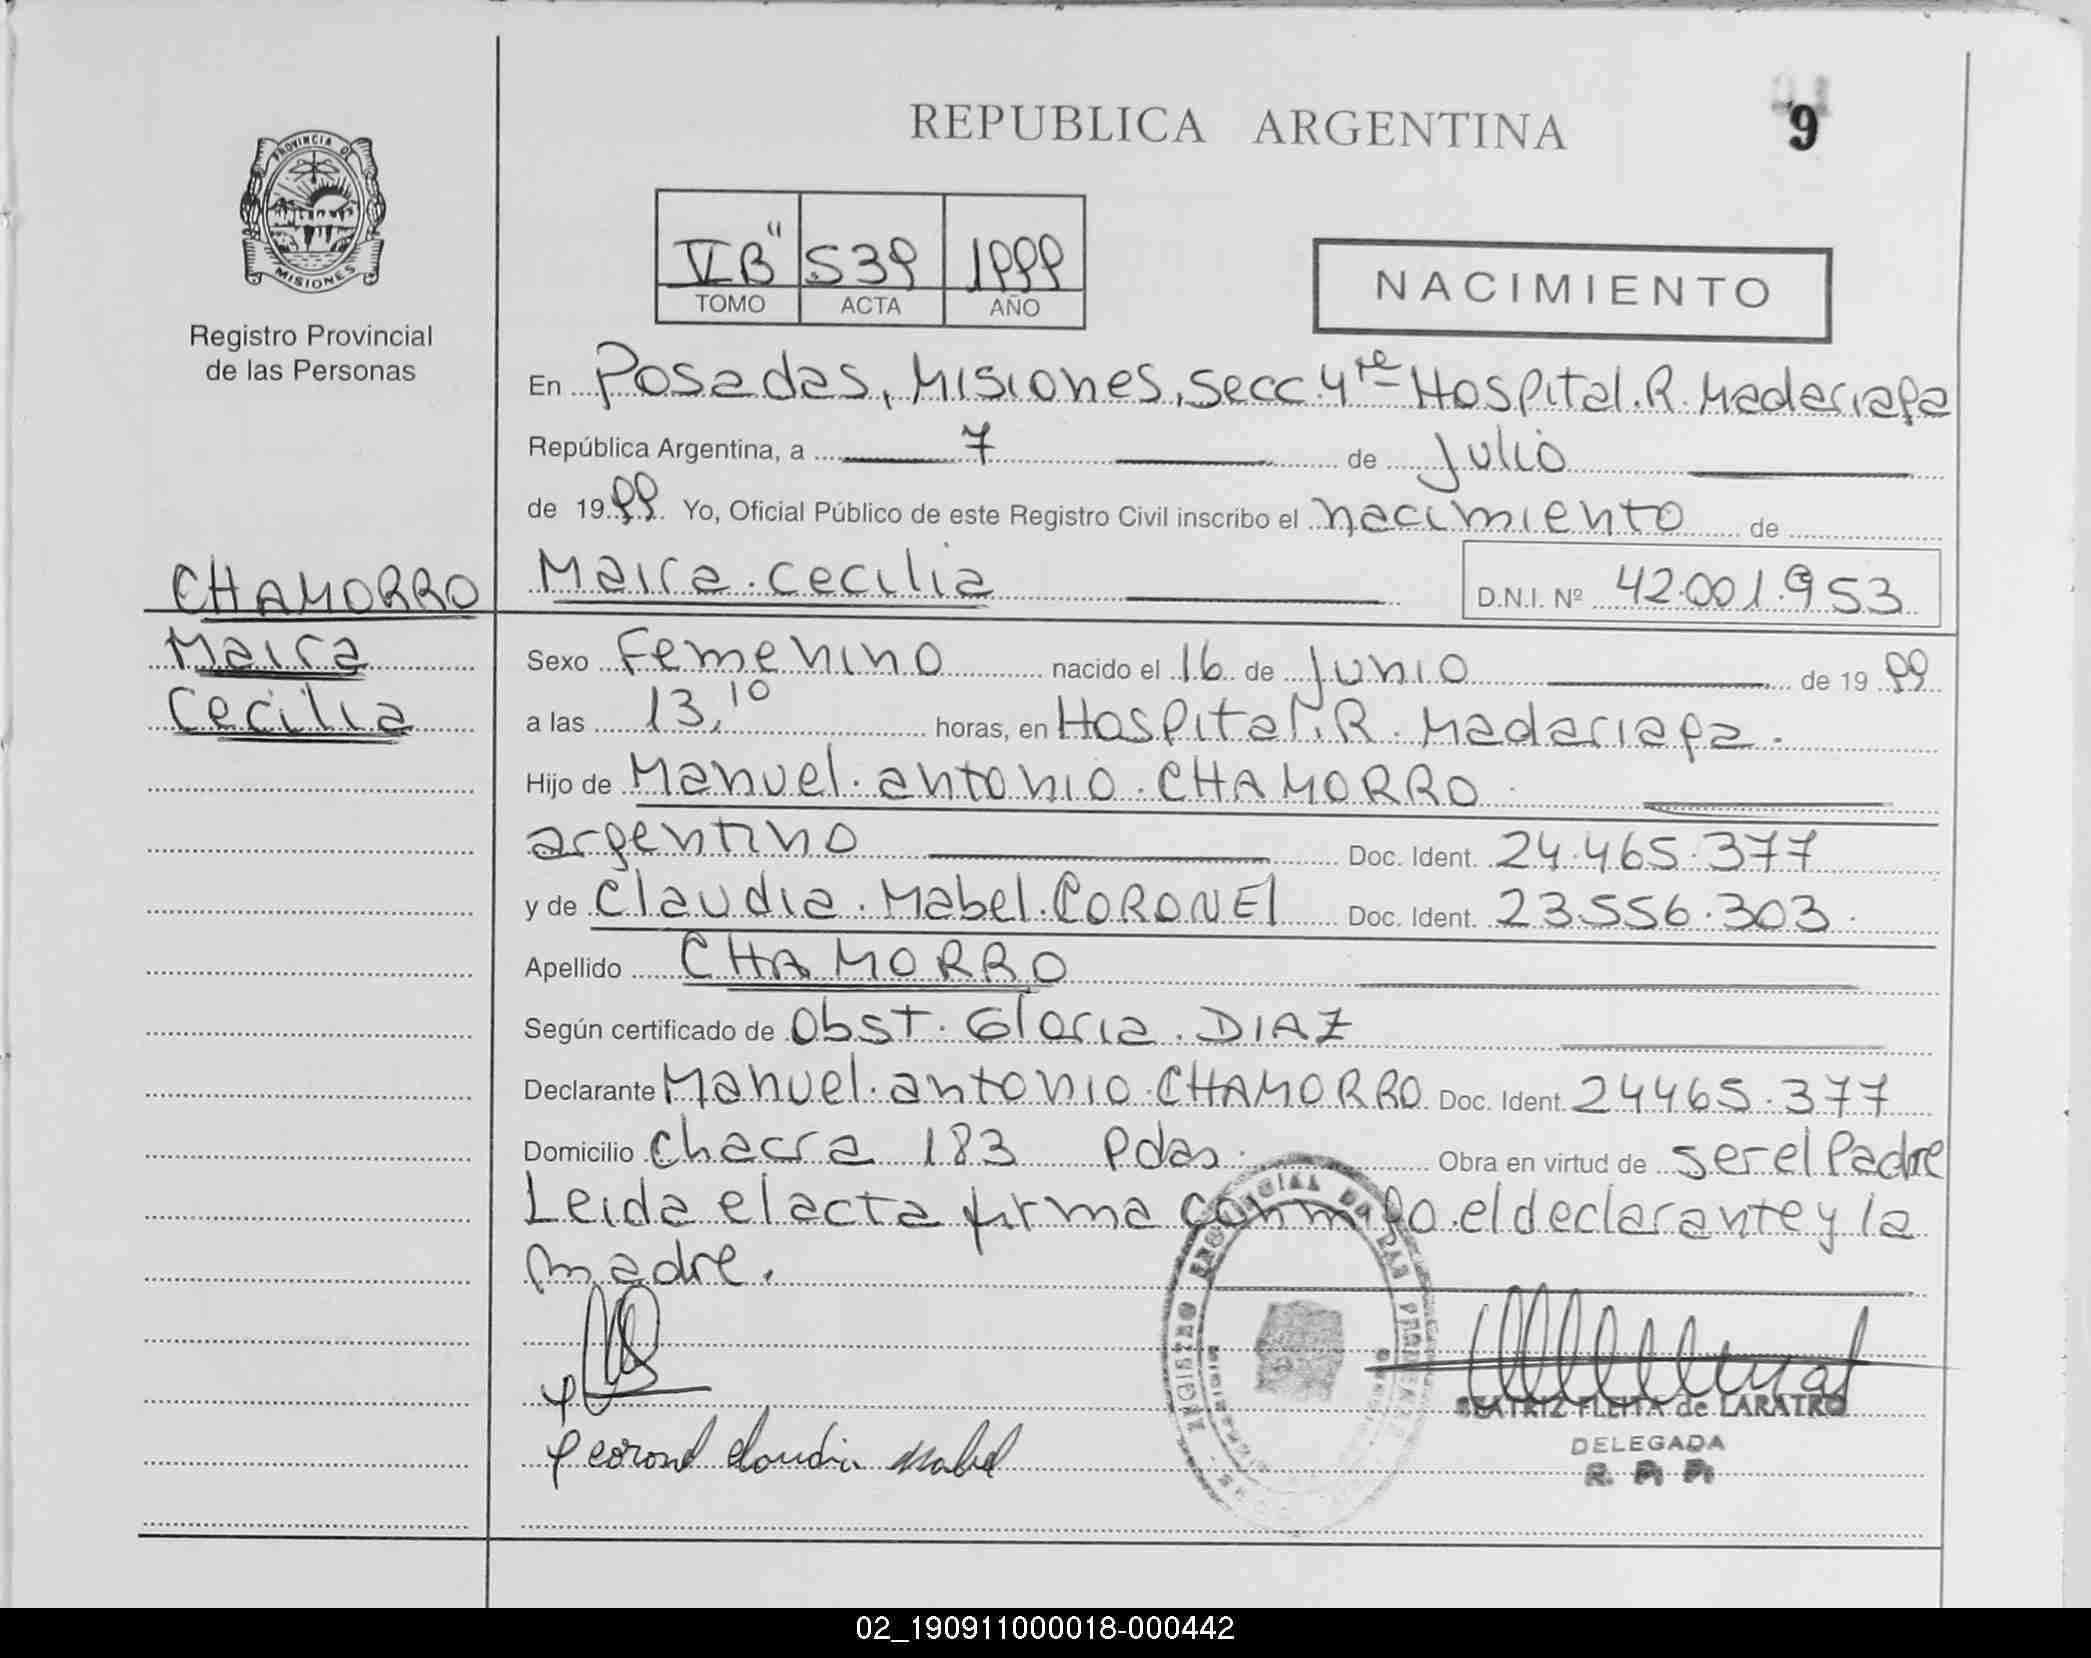 REPUBLICA ARGENTINA
9
PROVINCIA DE
MISIONES
Registro Provincial
de las Personas
VB" 539 1999
TOMO ACTA AÑO
NACIMIENTO
En Posadas, Misiones, Secc. 4ta Hospital. R. Madariaga
República Argentina, a 7 de Julio
de 1999 Yo, Oficial Público de este Registro Civil inscribo el nacimiento de
CHAMORRO
Maira
Cecilia
Maira. Cecilia D.N.I. Nº 42.001.953
Sexo Femenino nacido el 16 de Junio de 1999
a las 13,10 horas, en Hospital. R. Madariaga.
Hijo de Manuel. antonio. CHAMORRO
argentino Doc. Ident. 24.465.377
y de Claudia. Mabel. CORONEl Doc. Ident. 23.556.303.
Apellido CHAMORRO
Según certificado de Obst. Gloria. DIAZ
Declarante Manuel. antonio. CHAMORRO Doc. Ident. 24465.377
Domicilio Chacra 183 Pdas. Obra en virtud de ser el Padre
Leida el acta firma conmigo el declarante y la
madre.
Coronel Claudia Mabel
BEATRIZ FLEITA de LARATRO
DELEGADA
R. P. P.
REGISTRO PROVINCIAL DE LAS PERSONAS
02_190911000018-000442